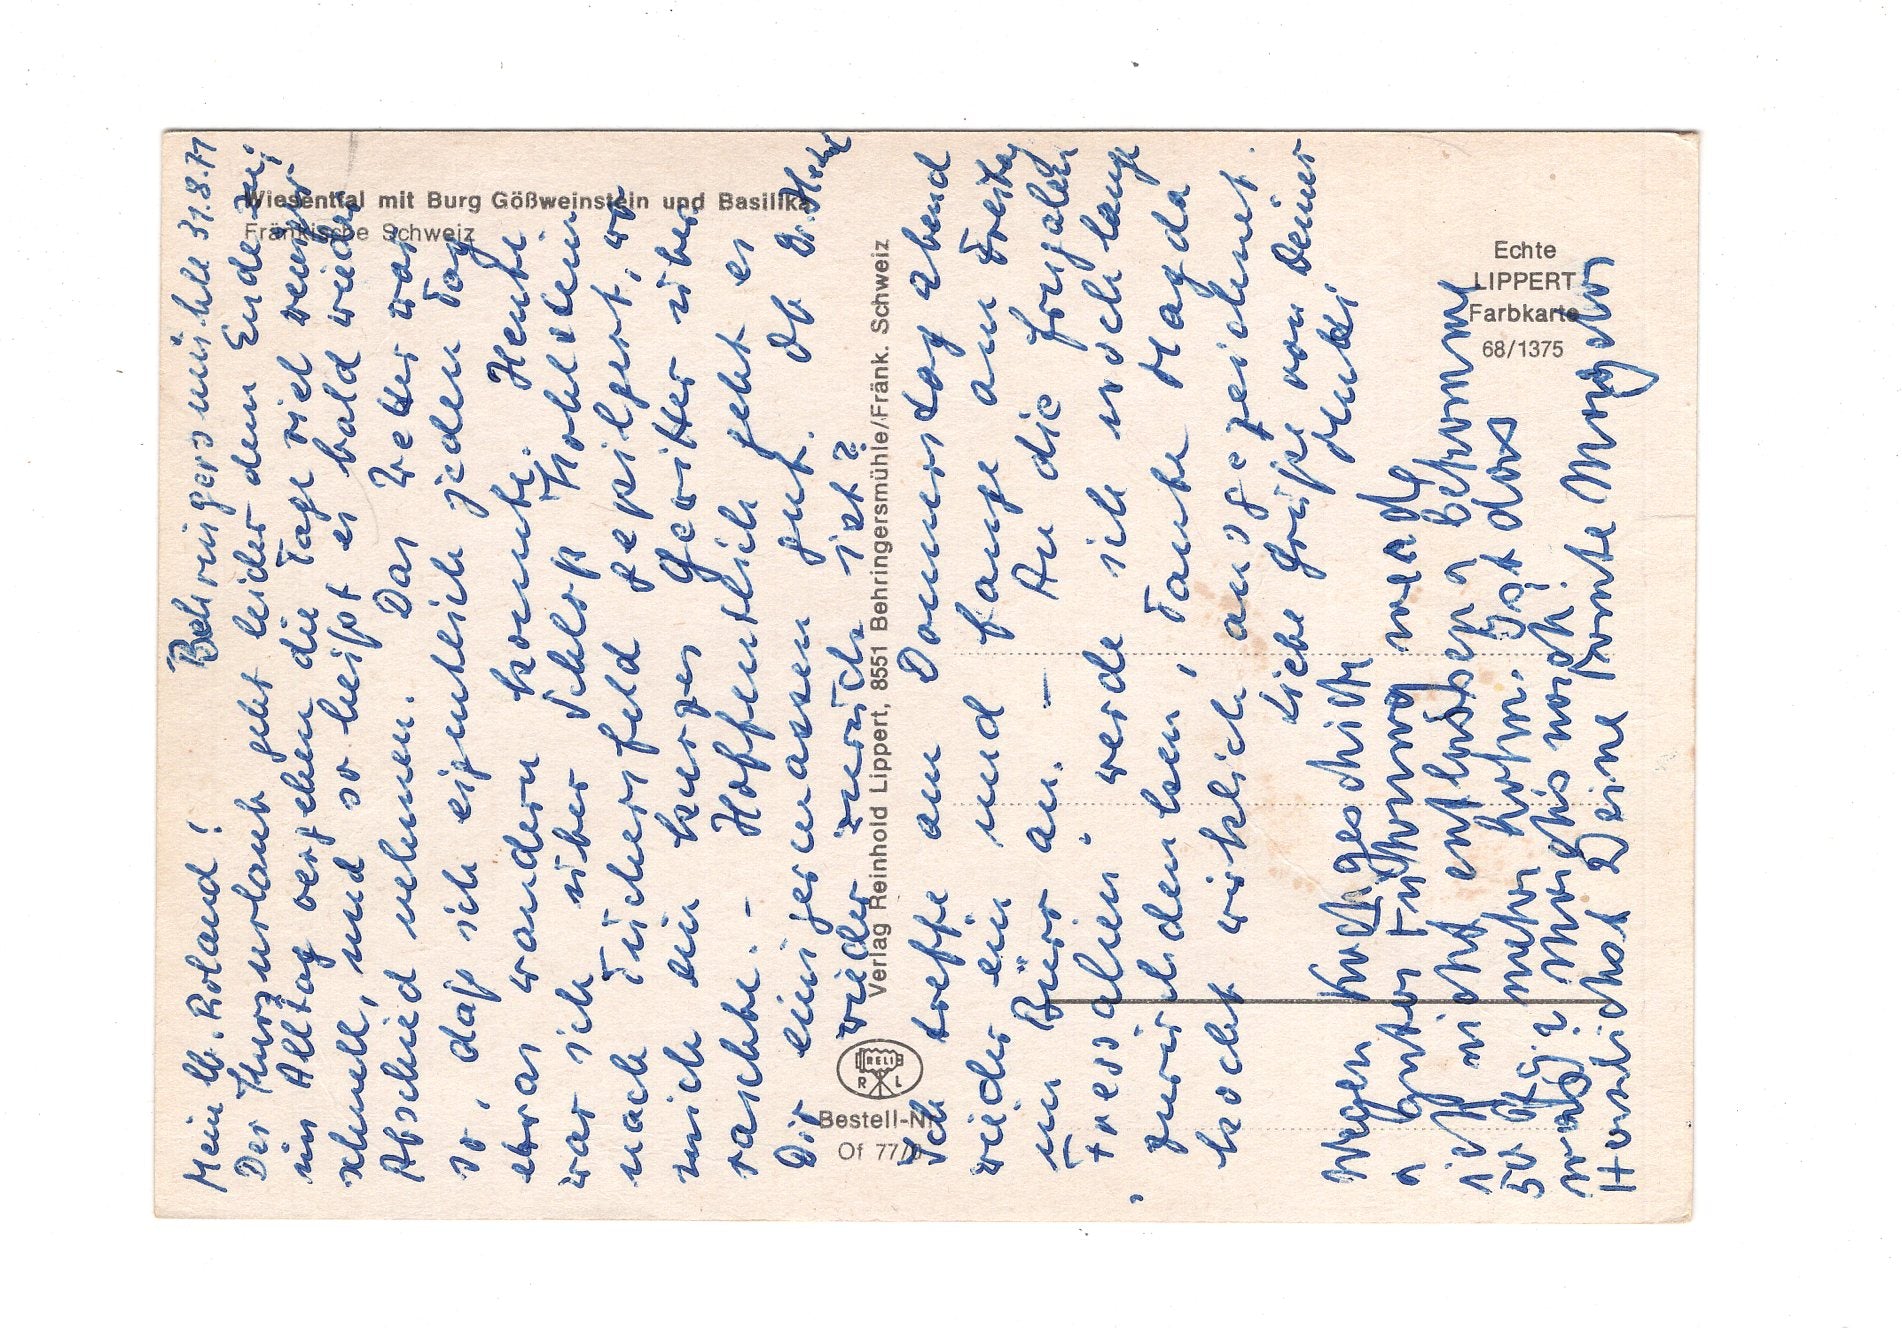 Wiesenttal mit Burg Gößweinstein und Basilika
Fränkische Schweiz
Echte
LIPPERT
Farbkarte
68/1375
Verlag Reinhold Lippert, 8551 Behringersmühle/Fränk. Schweiz
RELI
R L
Bestell-Nr.
Of 77/
Behringersmühle 31.8.71
Mein lb. Roland!
Der Kurzurlaub geht leider dem Ende zu;
im Alltag vergehen die Tage viel weniger
schnell, und so heißt es bald wieder
Abschied nehmen. Das Wetter war
so, daß ich eigentlich jeden Tag
etwas wandern konnte. Heute
war ich über Schloß Kohlstein
nach Tüchersfeld gepilgert, wo
mich ein kurzes Gewitter über-
raschte. – Hoffentlich geht es
Dir einigermassen gut. Ob Dr.
wieder zurück ist?
Ich treffe am Donnerstag abend
wieder ein und fange am Freitag
im Büro an. – An die frugalen
Fressalien werde ich noch lange
zurückdenken, Tante Magda
kocht wirklich ausgezeichnet.
Liebe Grüße von Deiner
Mutti
Wegen Kochgeschick
u guter Führung werde
ich nicht entlassen u bekomme
50 Pfg mehr Lohn. Ist das
was? nichts noch!
Herzlichst Deine Tante